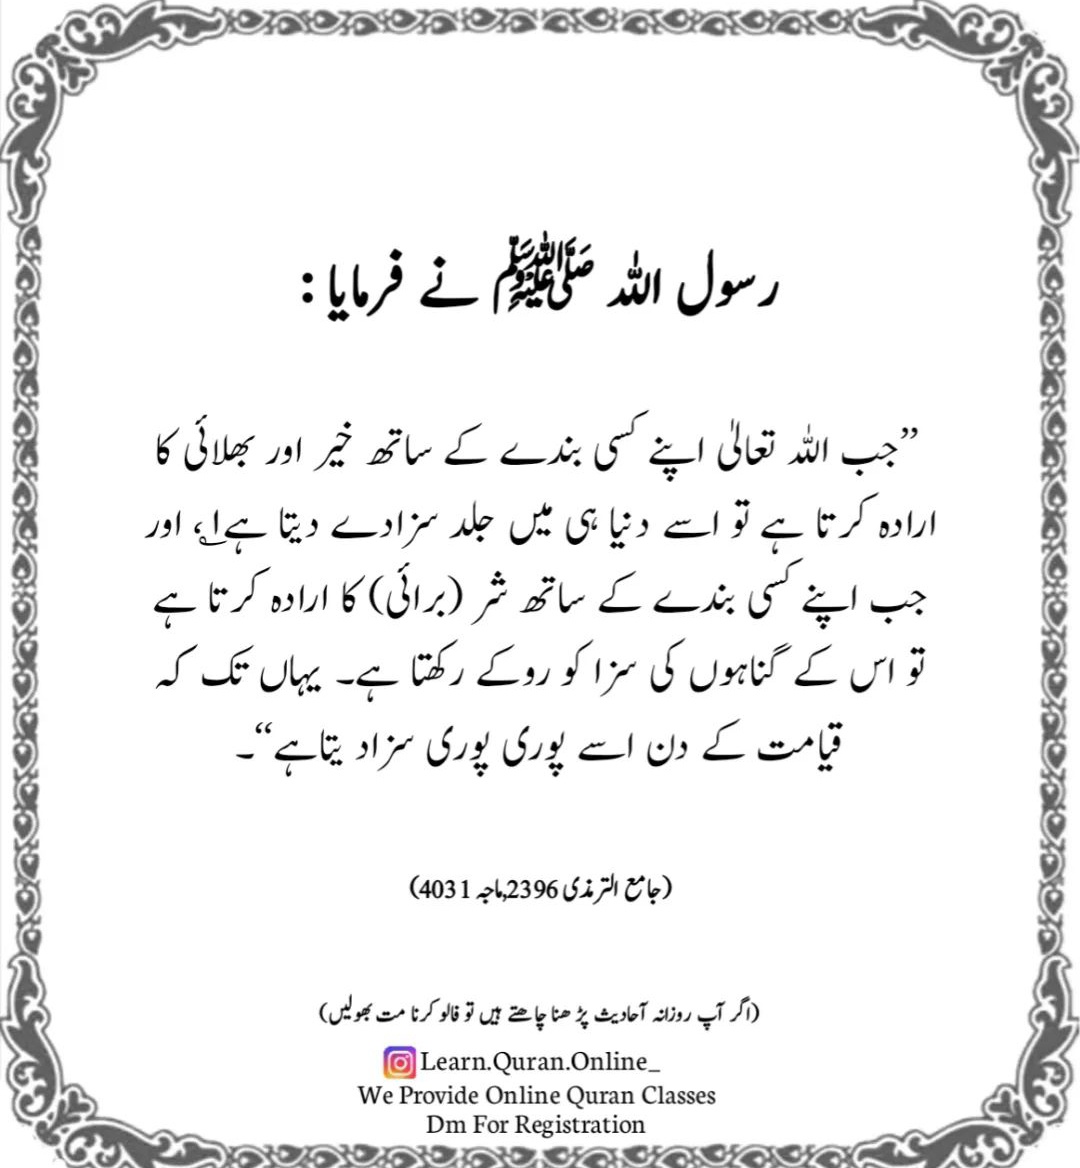 رسول اللہ ﷺ نے فرمایا :
”جب اللہ تعالیٰ اپنے کسی بندے کے ساتھ خیر اور بھلائی کا
ارادہ کرتا ہے تو اسے دنیا ہی میں جلد سزادے دیتا ہے؂۱، اور
جب اپنے کسی بندے کے ساتھ شر (برائی) کا ارادہ کرتا ہے
تو اس کے گناہوں کی سزا کو روکے رکھتا ہے۔ یہاں تک کہ
قیامت کے دن اسے پوری پوری سزاد یتاہے“۔
(جامع الترمذی 2396,ماجہ 4031)
(اگر آپ روزانہ آحادیث پڑھنا چاھتے ہیں تو فالو کرنا مت بھولیں)
Learn.Quran.Online_
We Provide Online Quran Classes
Dm For Registration